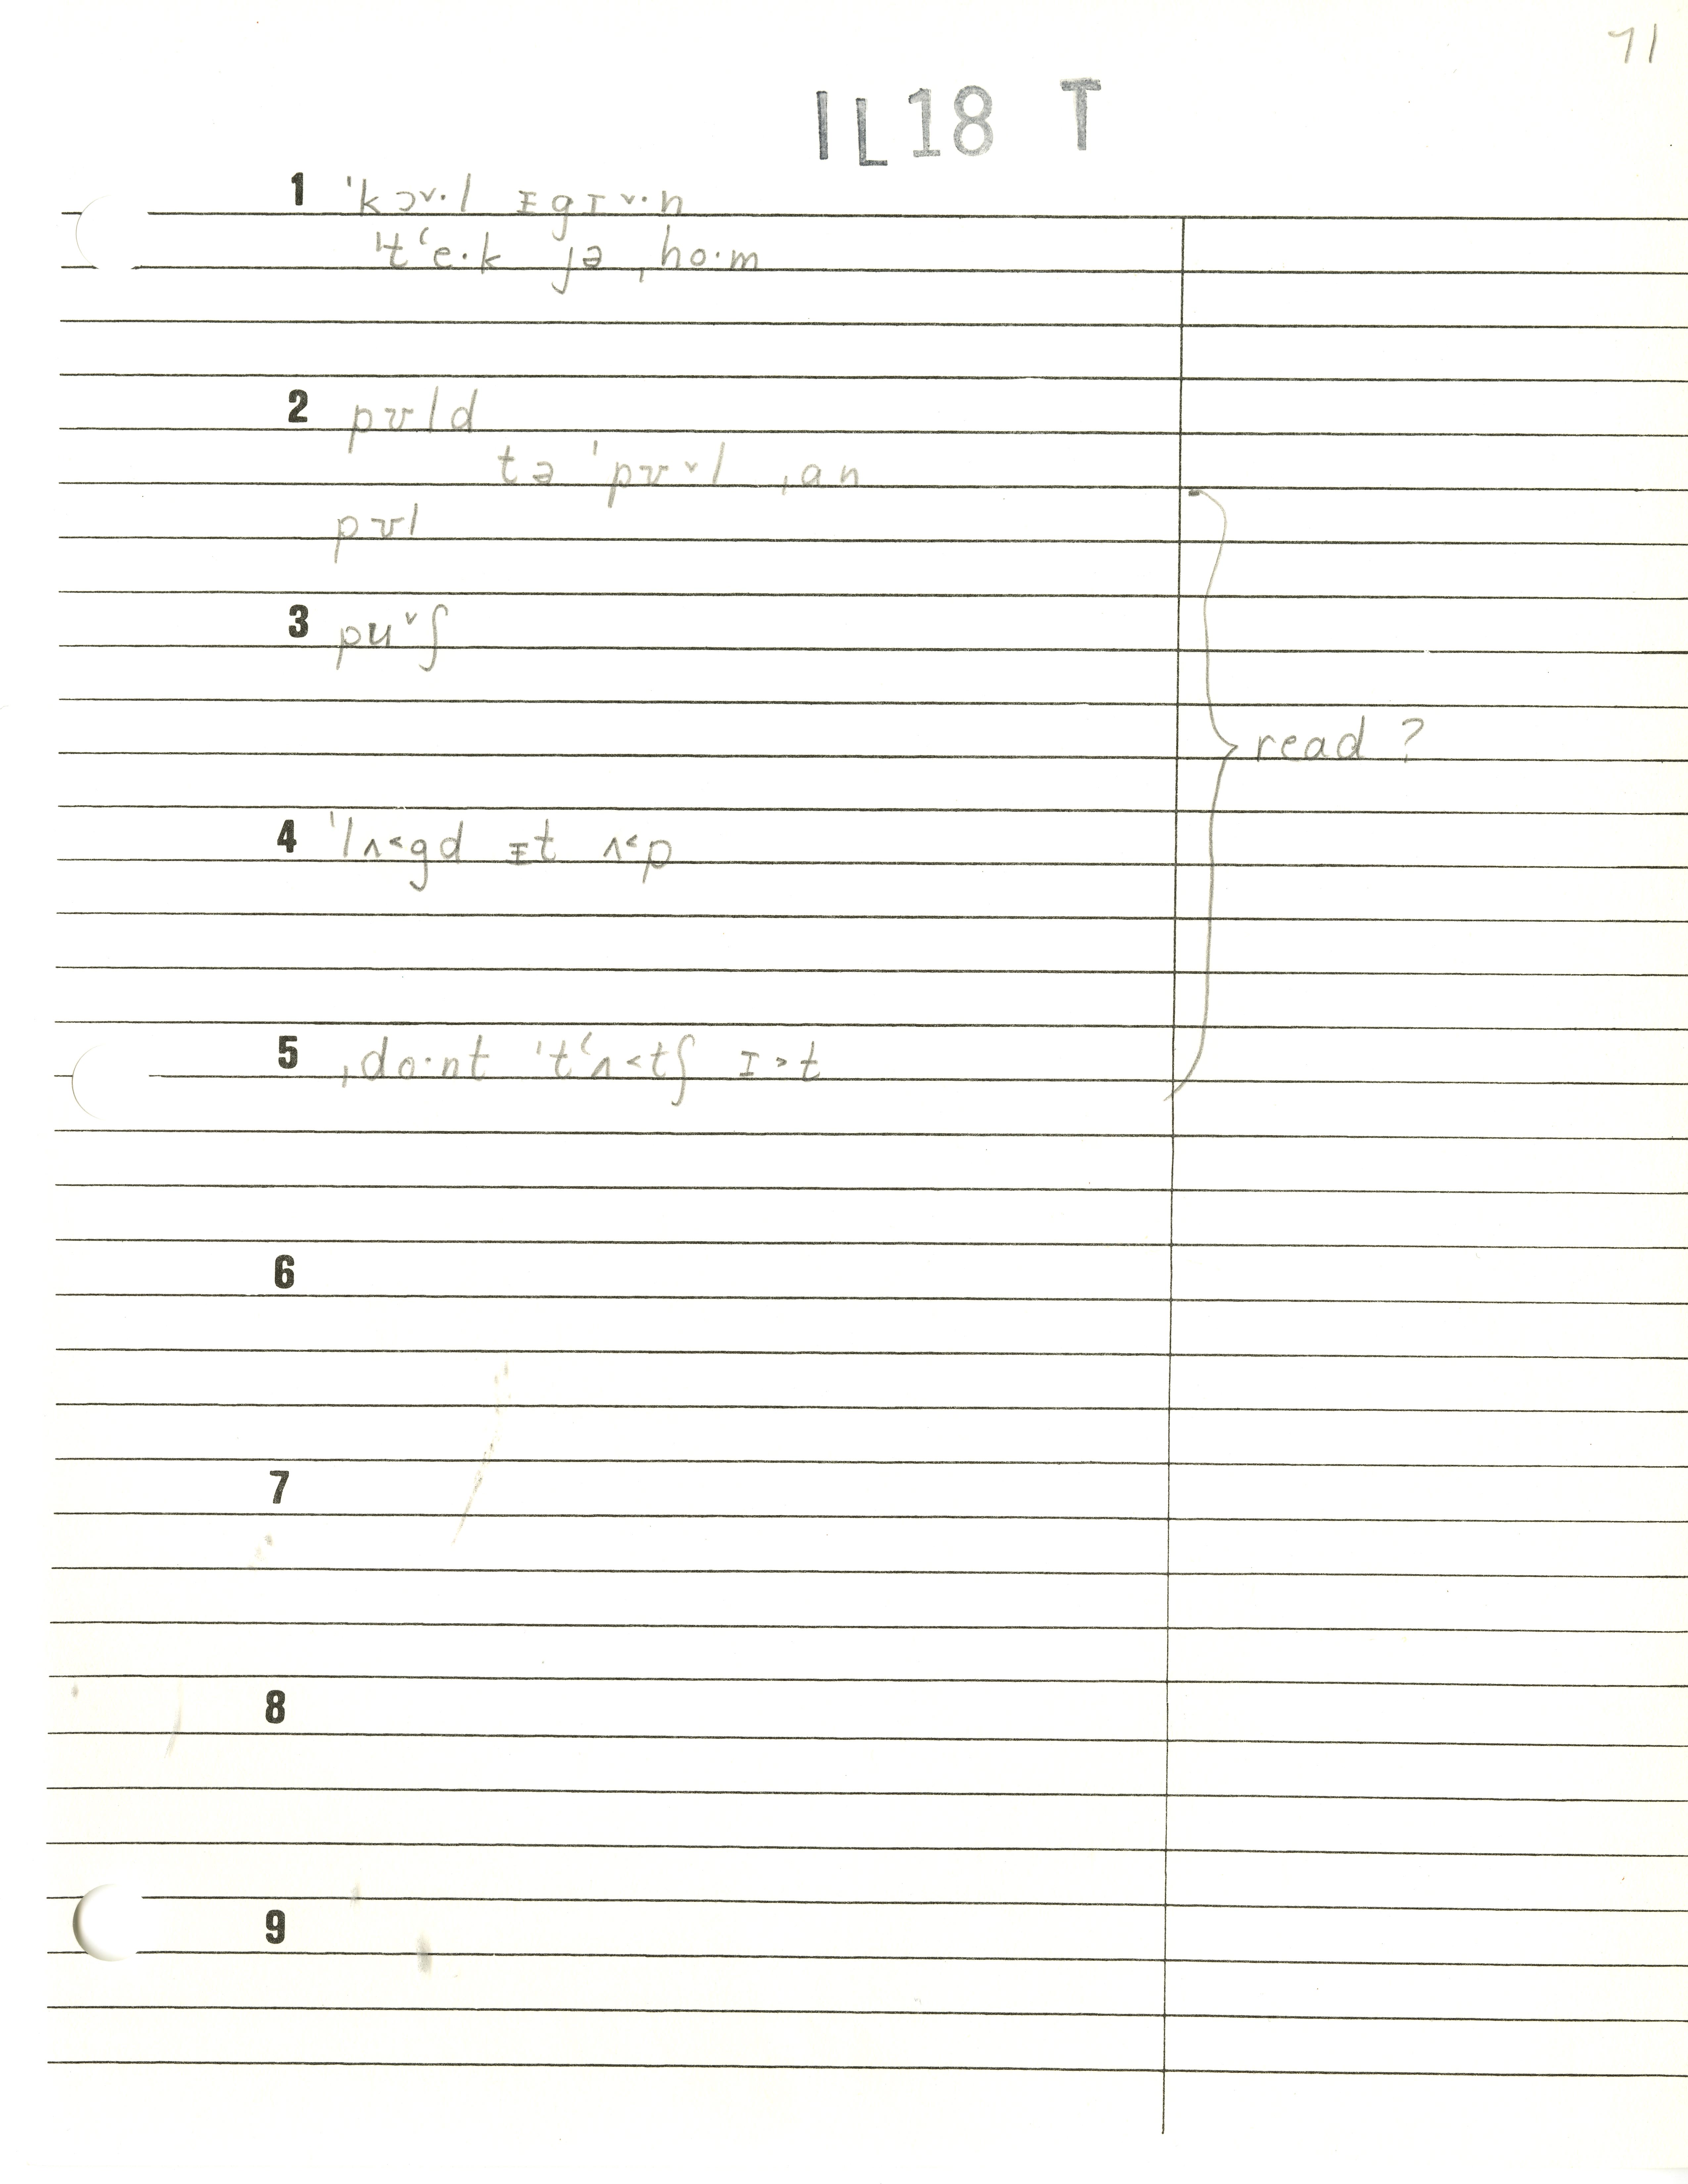 71
IL18 T
1 ˈkɔ˅·l ᵻgɪ˅·n
ˈtʻe·k jə ˌho·m
2 pʊld
tə ˈpʊ˅l ˌan
pʊl
3 pu˅ʃ
read ?
4 ˈlʌ˂gd ᵻt ʌ˂p
5 ˌdo·nt ˈtʻʌ˂tʃ ɪ˃t
6
7
8
9